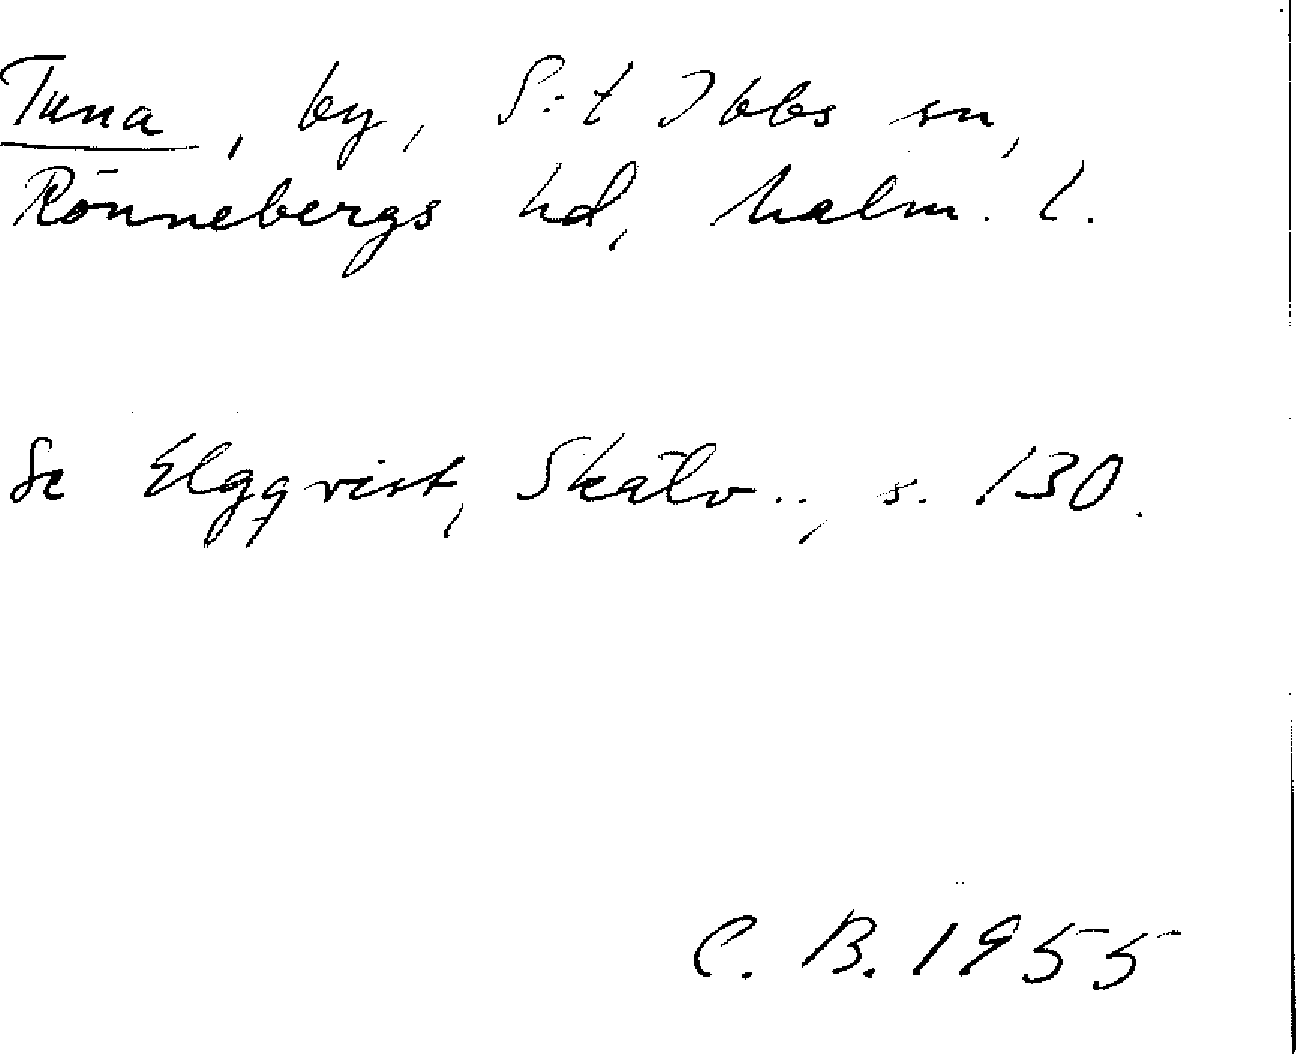 Tuna, by, S:t Ibbs sn,
Rönnebergs hd, malm. l.
Se Elgqvist, Skälv.., s. 130.
C. B. 1955